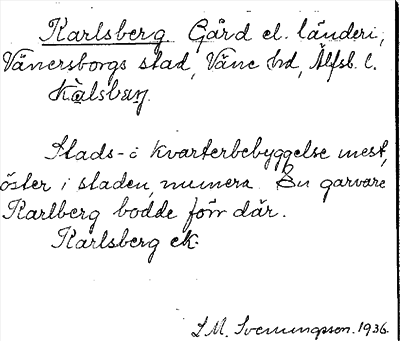 Karlsberg. Gård el. länderi,
Vänersborgs stad, Väne hd, Älfsb. l.
Stads- o kvarterbebyggelse mest,
öster i staden, numera. En garvare
Karlberg bodde förr där.
Karlsberg ek.
S. M. Svenungsson. 1936.